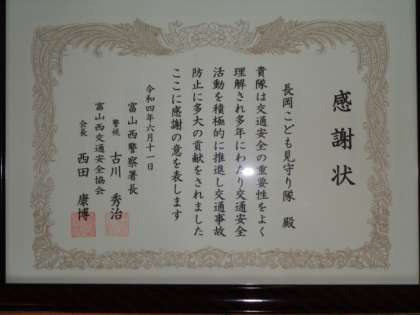 感謝状
長岡こども見守り隊 殿
貴隊は交通安全の重要性をよく
理解され多年にわたり交通安全
活動を積極的に推進し交通事故
防止に多大の貢献をされました
ここに感謝の意を表します
令和四年六月十一日
富山西警察署長
警視 古川 秀治
富山西交通安全協会
会長 西田 康博